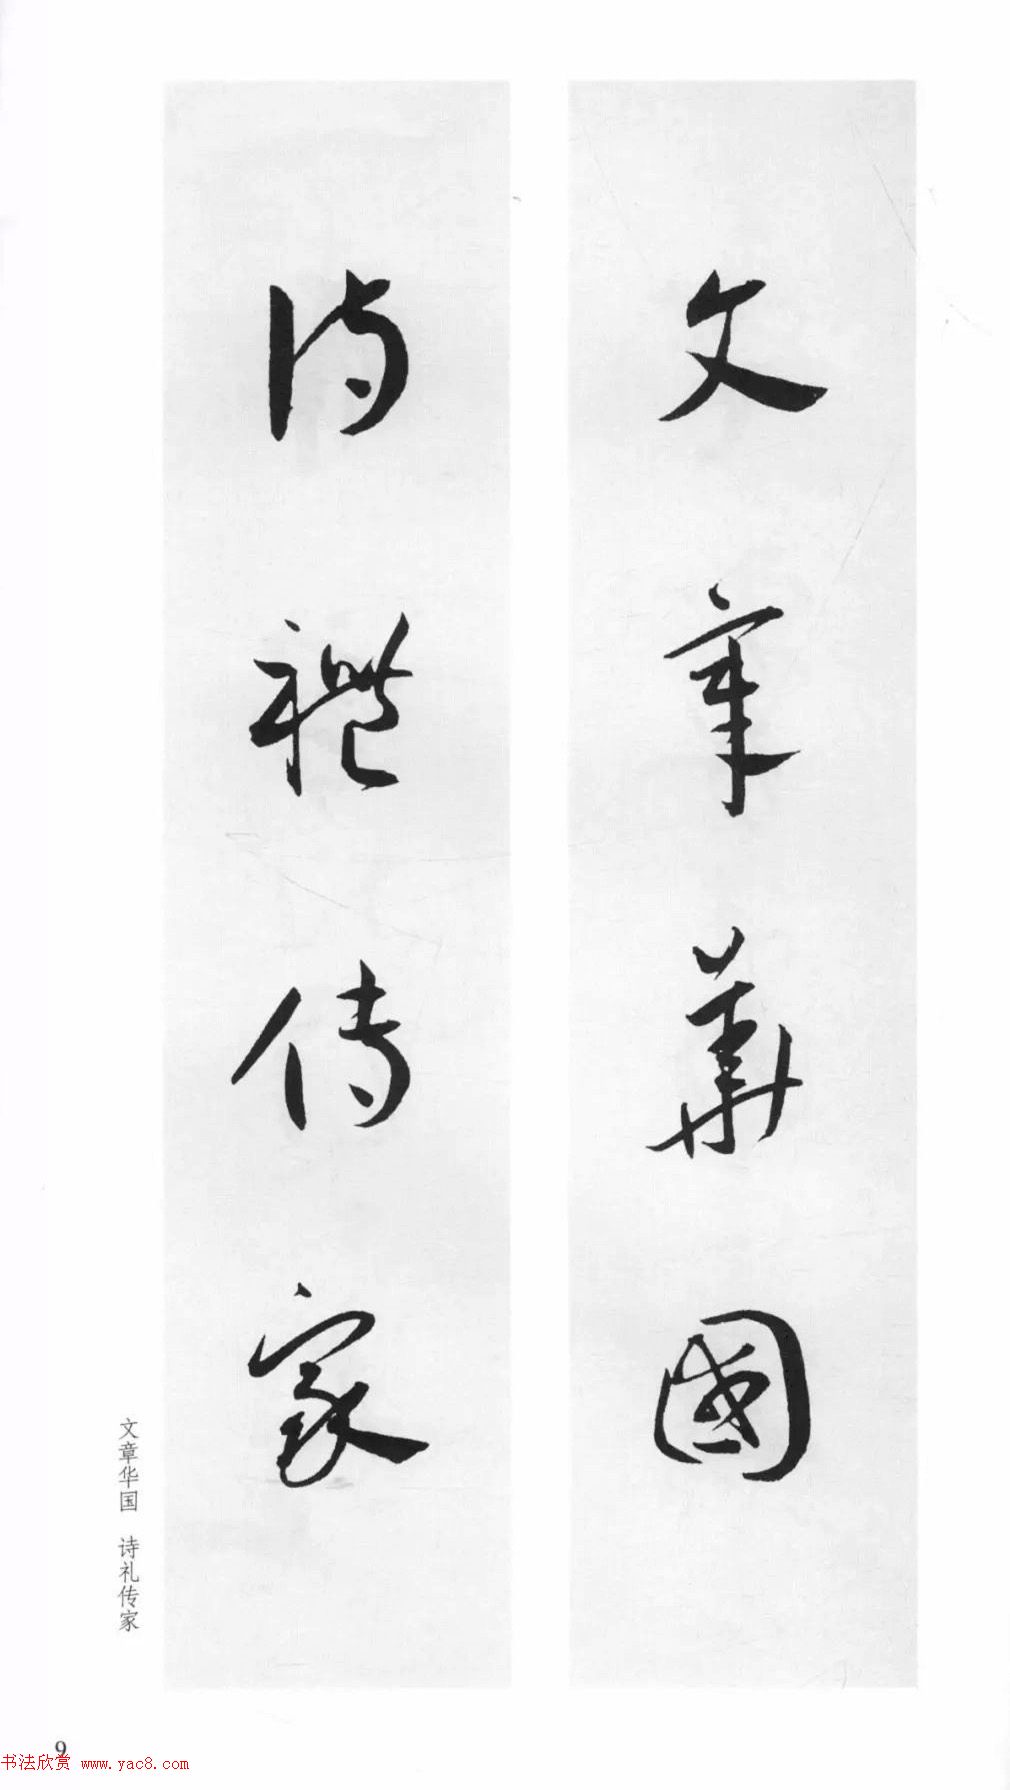 文章華國
詩禮傳家
文章华国 诗礼传家
9
书法欣赏 www.yac8.com